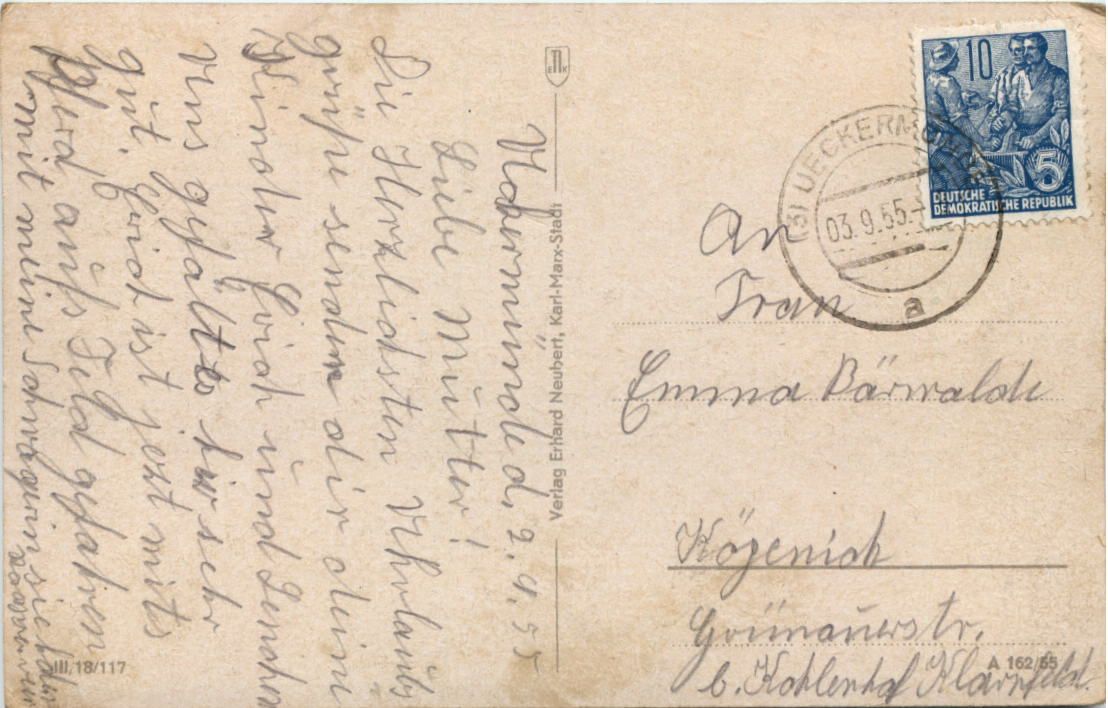 Ükermünde d. 2.9.55
Liebe Mutter!
Die Herzlichsten Uhrlaubs
grüße senden dir deine
Kinder Erich und
Uns gefällt es hir sehr
gut. Erich ist jezt mits
Pferd aufs Feld gefahren
mit meine Schwägerin sie
III/18/117
Verlag Erhard Neubert, Karl-Marx-Stadt
E K
10
5
DEUTSCHE
DEMOKRATISCHE REPUBLIK
(3) UECKERMÜNDE
03.9.55.-
a
An
Frau
Emma Bärwalde
Köpenick
Grünauerstr.
b. Kohlenhof
A 162/55